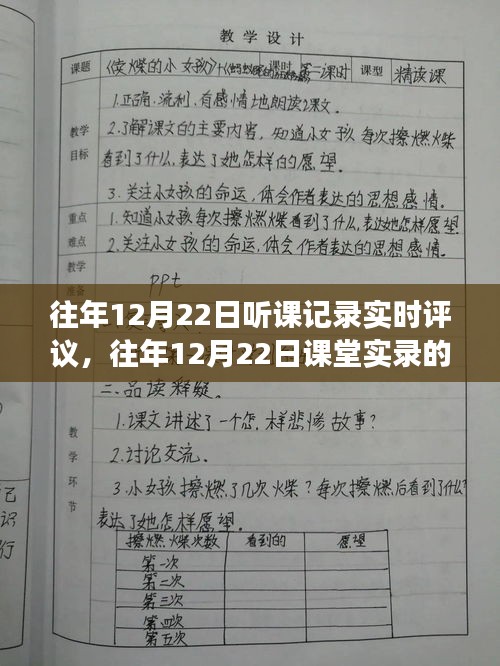 教学设计
课题
《卖火柴的小女孩》
课时
第二课时
课型
精读课
教学
目标
1.正确、流利、有感情地朗读课文。
2.了解课文的主要内容，知道小女孩每次擦燃火柴
看到了什么，表达了她怎样的愿望。
3.关注小女孩的命运，体会作者表达的思想感情。
重点
难点
1.知道小女孩每次擦燃火柴看到了什么，表达她怎样愿望
2.关注小女孩的命运，体会作者表达的思想感情。
教学
ppt
往年12月22日听课记录实时评
议，往年12月22日课堂实录的
二、品读释疑。
教
学
环
节
1.课文讲述了一个怎样悲惨故事？
2.讨论交流。
3.小女孩擦燃了几次火柴？每次擦燃后看到了什么？
表达了她怎样愿望。
擦燃火柴次数
看到的
愿望
第一次
第二次
第三次
第四次
第五次
己
识
行